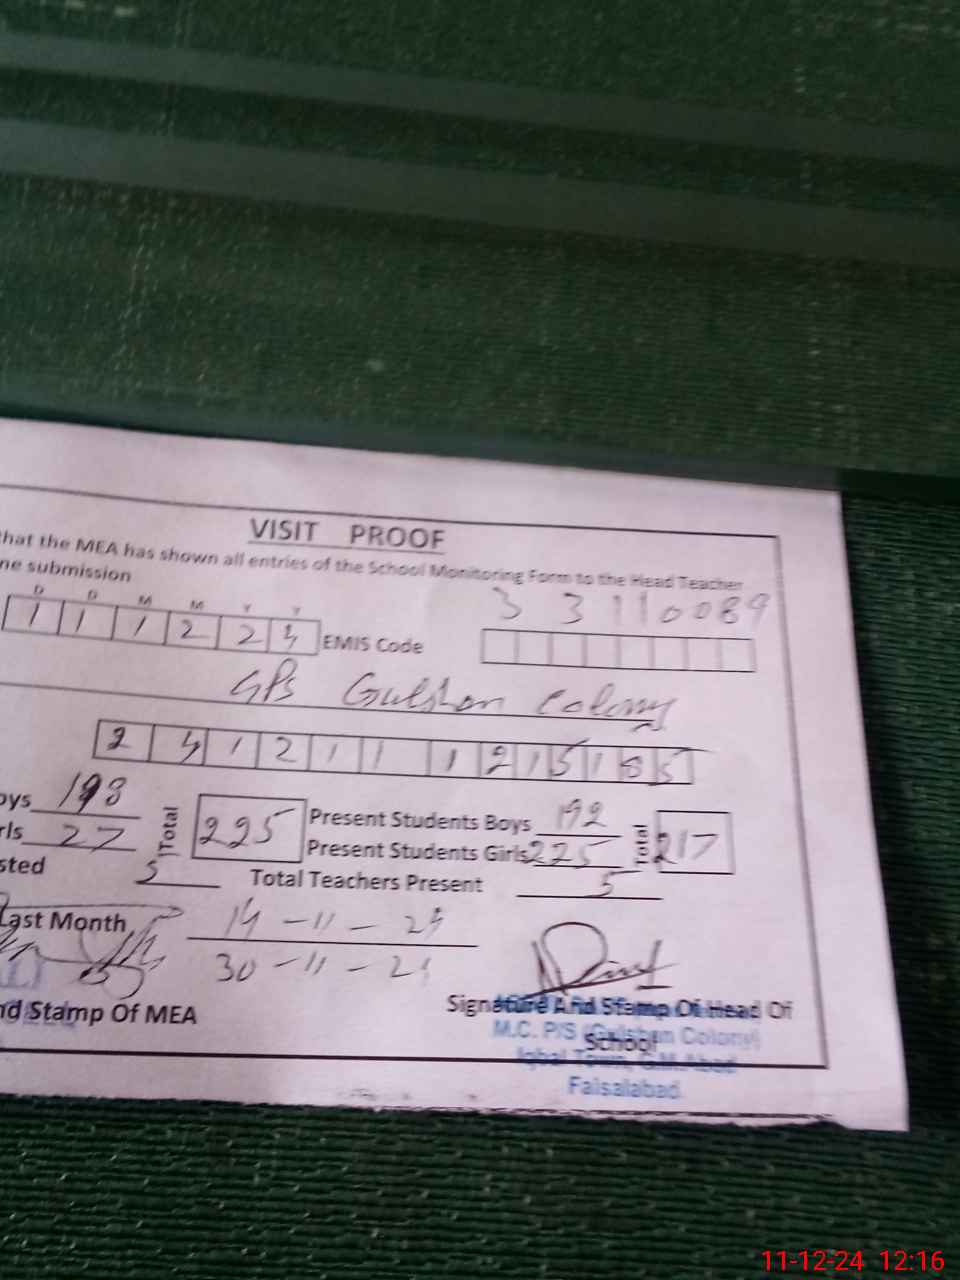 VISIT PROOF
that the MEA has shown all entries of the School Monitoring Form to the Head Teacher
ne submission
D D M M Y Y
1 1 1 2 2 4 EMIS Code 3 3 1 1 0 0 8 9
GPS Gulshan Colony
2 4 1 2 1 1 1 2 1 5 1 8 5
oys 198 Total 225 Present Students Boys 192 Total 217
rls 27 Present Students Girls 225
sted 5 Total Teachers Present 5
Last Month 14-11-24
30-11-24
nd Stamp Of MEA
Signature And Stamp Of Head Of
School
M.C. P/S (Gulshan Colony)
Iqbal Town, G.M.Abad
Faisalabad
11-12-24 12:16